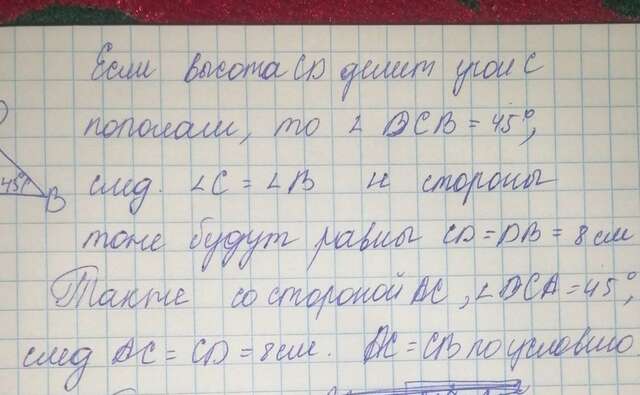 Если высота CD делит угол C
пополам, то ∠ DCB = 45°,
45° B
след. ∠C = ∠B и стороны
тоже будут равны CD = DB = 8 см
Также со стороной AC, ∠DCA = 45°,
след AC = CD = 8 см. AC = CB по условию